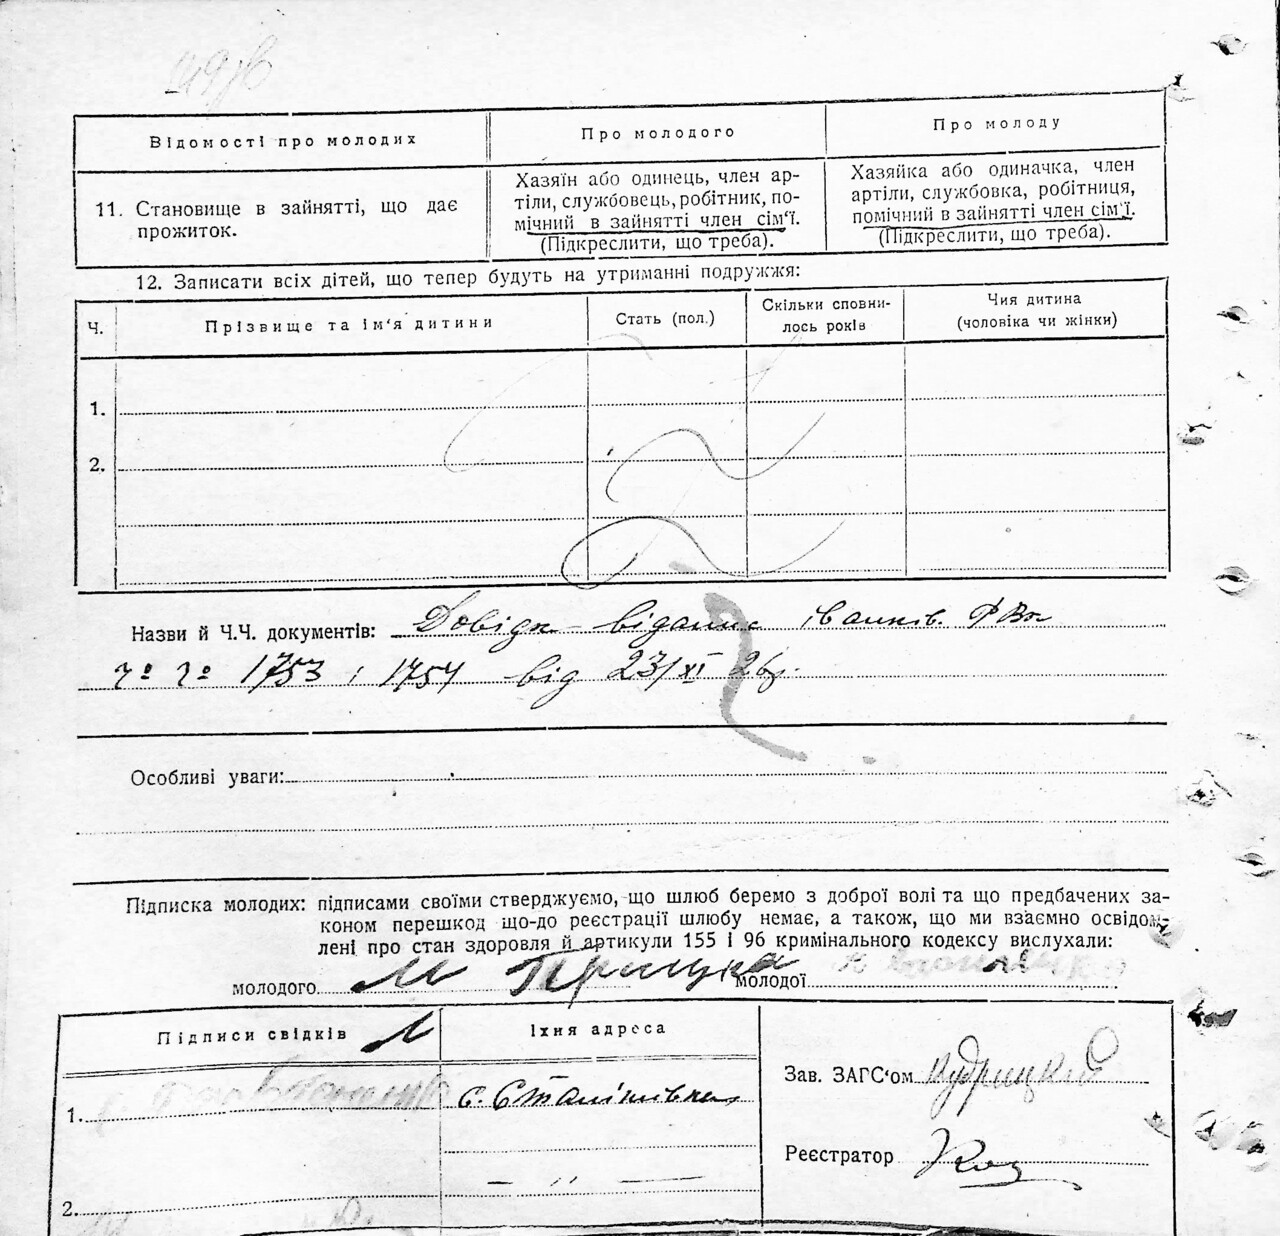 Відомості про молодих
Про молодого
Про молоду
11. Становище в зайнятті, що дає
прожиток.
Хазяїн або одинець, член ар-
тіли, службовець, робітник, по-
мічний в зайнятті член сім'ї.
(Підкреслити, що треба).
Хазяйка або одиначка, член
артіли, службовка, робітниця,
помічний в зайнятті член сім'ї.
(Підкреслити, що треба).
12. Записати всіх дітей, що тепер будуть на утриманні подружжя:
Ч.
Прізвище та ім'я дитини
Стать (пол.)
Скільки сповни-
лось років
Чия дитина
(чоловіка чи жінки)
1.
2.
Назви й Ч.Ч. документів: Довідк видані Іванків. РВК
№ № 1753 і 1754 від 23/XI 26р.
Особливі уваги:
Підписка молодих: підписами своїми стверджуємо, що шлюб беремо з доброї волі та що предбачених за-
коном перешкод що-до реєстрації шлюбу немає, а також, що ми взаємно освідом-
лені про стан здоровля й артикули 155 і 96 кримінального кодексу вислухали:
молодого М
молодої
Підписи свідків
Їхня адреса
1.
с. Сталінівка
2.
— „ —
Зав. ЗАГС'ом Кудрицкий
Реєстратор